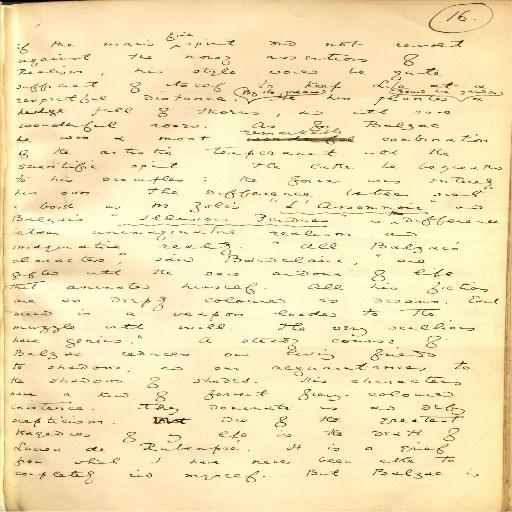 16.
if the man's fine spirit did not revolt
against the noisy assertions of
Realism, his style would be quite
sufficient of itself to keep Life at a
respectful distance. By its means he has planted round his garden a
hedge full of thorns, and red with
wonderful roses. As for Balzac
he was a most remarkable combination
of the artistic temperament with the
scientific spirit. The latter he bequeathed
to his disciples: the former was entirely
his own. The difference between such
a book as M. Zola's "L'Assommoir" and
Balzac's "Illusions Perdues" is the difference
between unimaginative realism and
imaginative reality. "All Balzac's
characters," said Baudelaire, "are
gifted with the same ardour of life
that animated himself. All his fictions
are as deeply coloured as dreams. Each
mind is a weapon loaded to the
muzzle with will. The very scullions
have genius." A steady course of
Balzac reduces our living friends
to shadows, and our acquaintances to
the shadows of shades. His characters
have a kind of fervent fiery-coloured
existence. They dominate us and defy
scepticism. One of the greatest
tragedies of my life is the death of
Lucien de Rubempré. It is a grief
from which I have never been able to
completely rid myself. But Balzac is